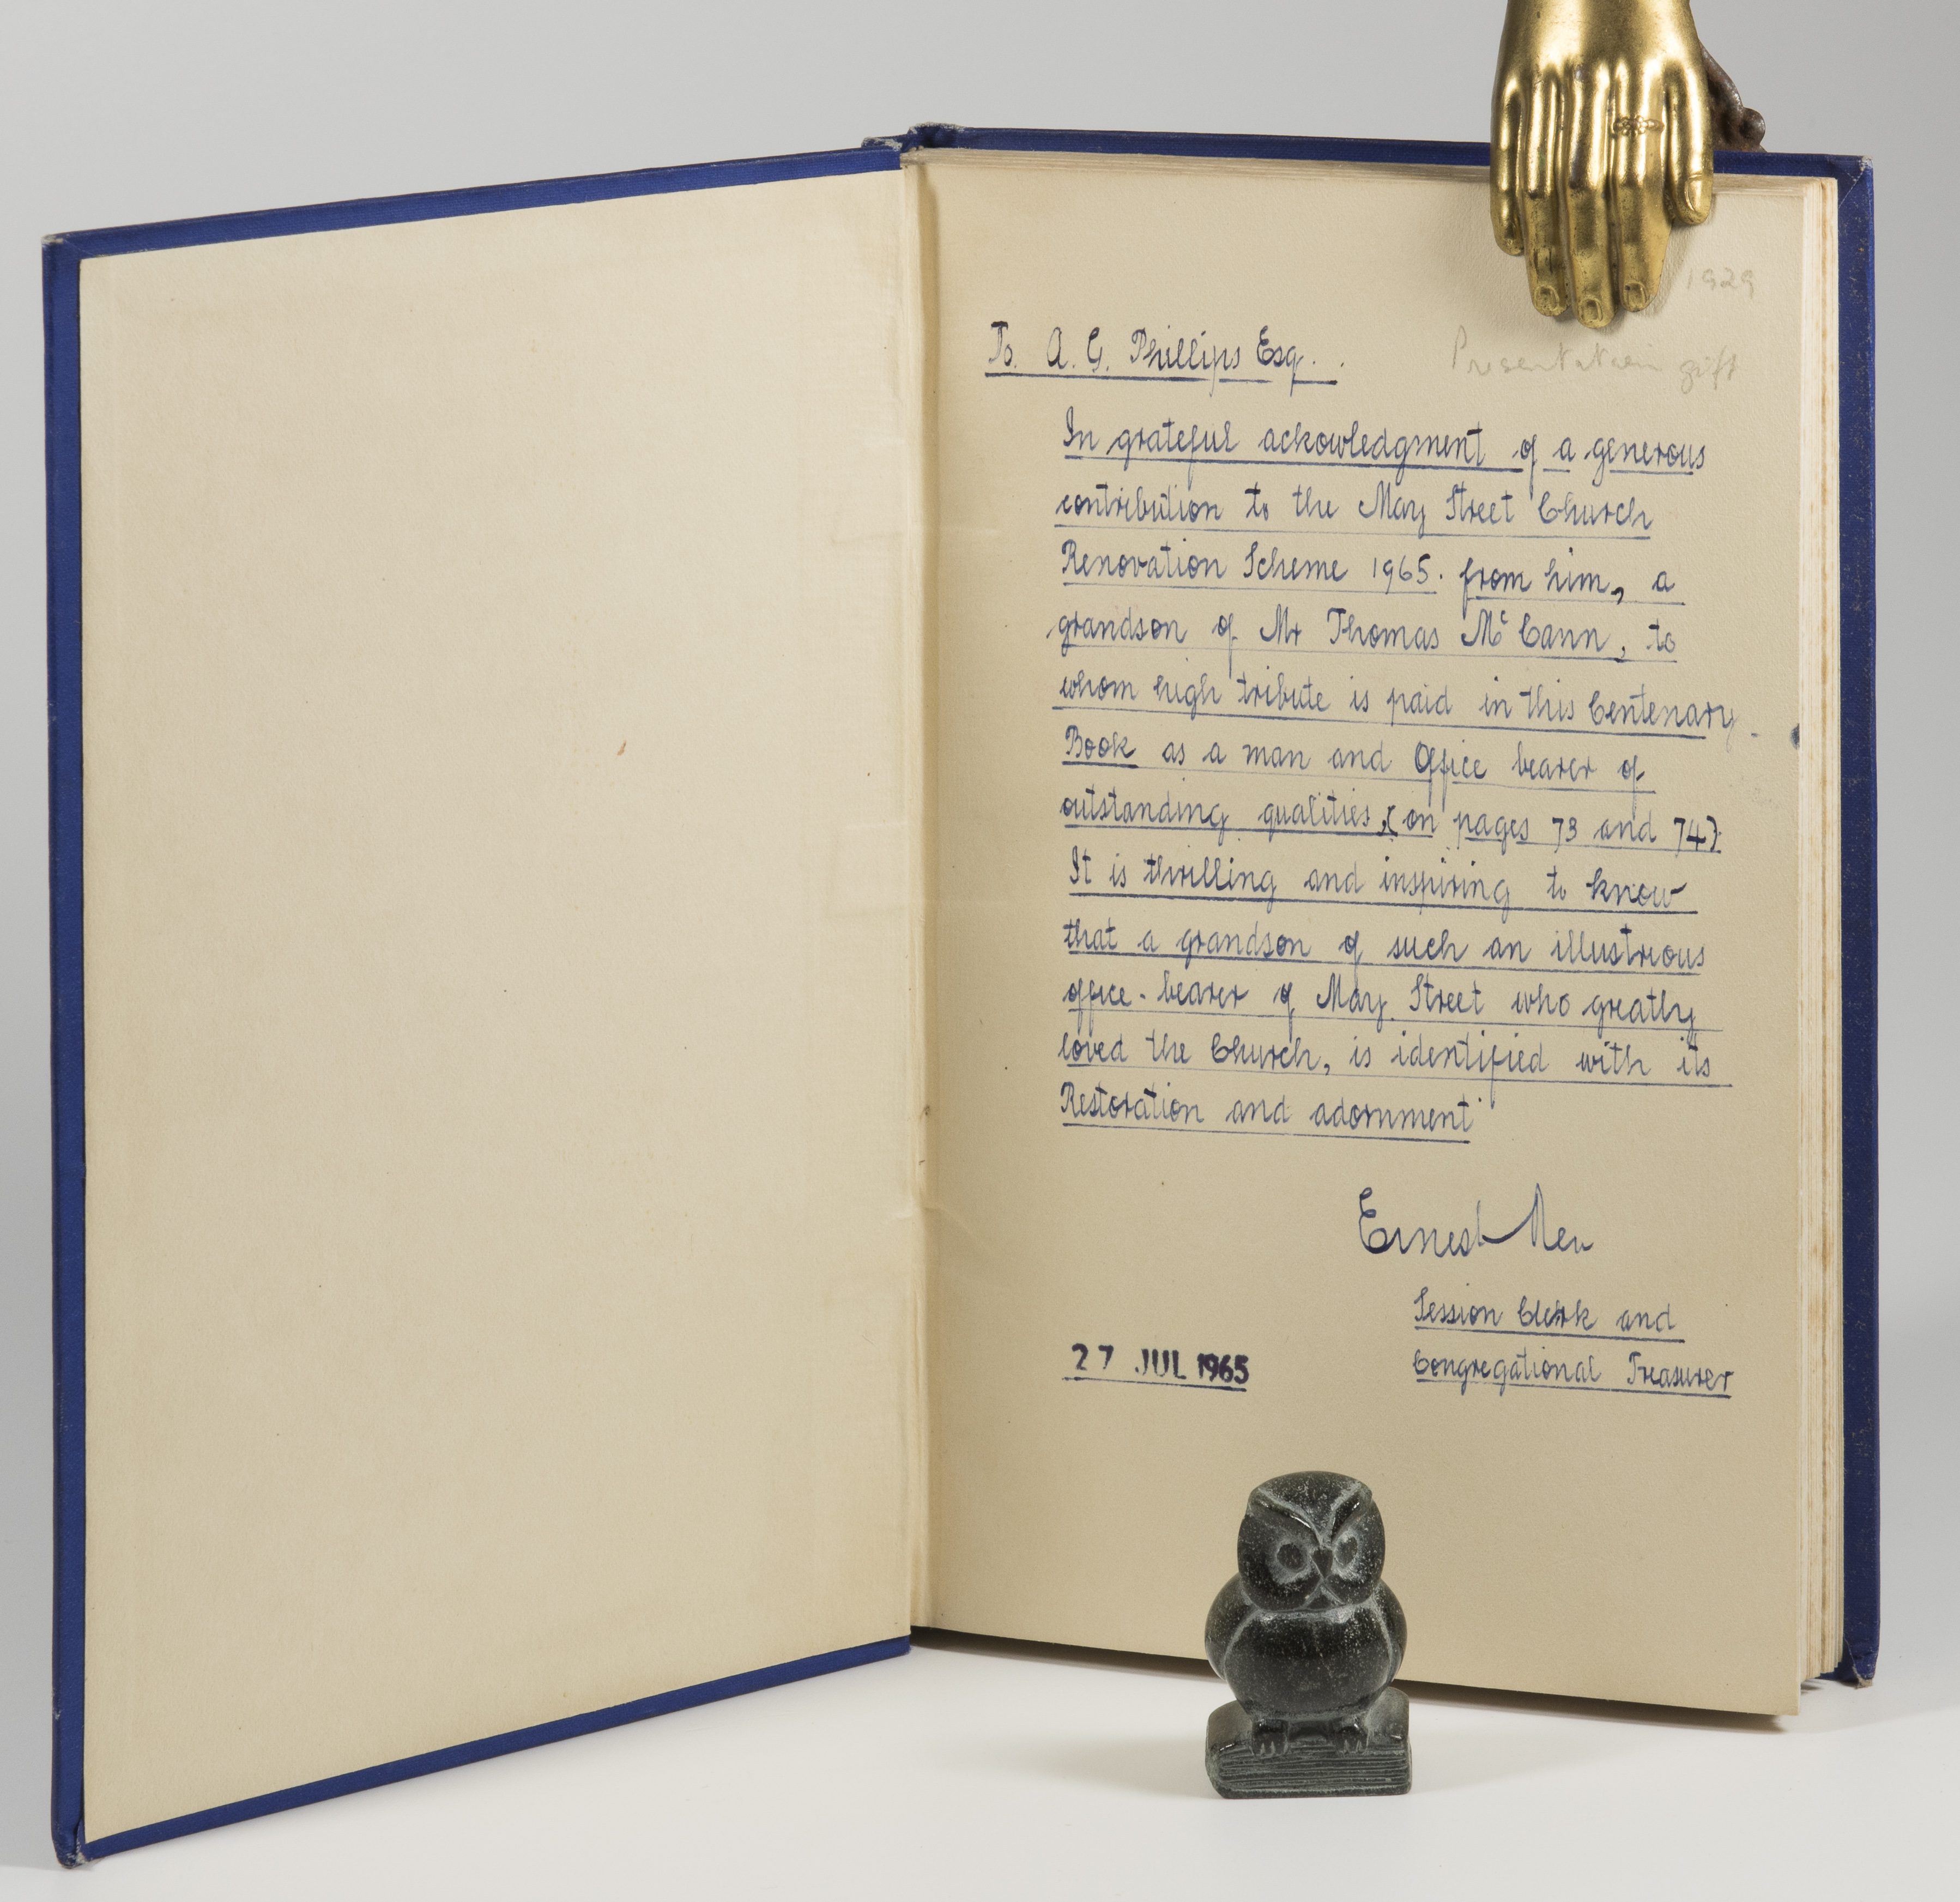 1929
Presentation gift
To. A. G. Phillips Esq. .
In grateful ackowledgment of a generous
contribution to the May Street Church
Renovation Scheme 1965. from him, a
grandson of Mr Thomas Mc Cann, to
whom high tribute is paid in this Centenary
Book as a man and Office bearer of
outstanding qualities, (on pages 73 and 74).
It is thrilling and inspiring to know
that a grandson of such an illustrious
office-bearer of May Street who greatly
loved the Church, is identified with its
Restoration and adornment
Ernest
Session Clerk and
Congregational Treasurer
27 JUL 1965